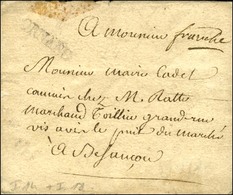 A Monsieur franche
Monsieur Marie Cadet
commis chez M. Ratte
Marchand Toillier grande rue
vis avis le puit du Marché
à Besançon